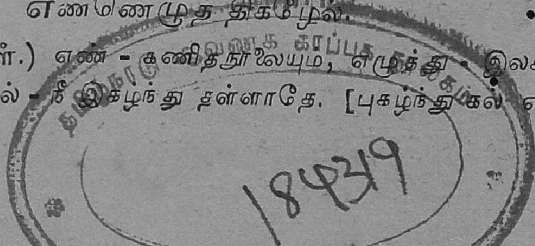 எண்ணெழுத் திகழேல்.
ள்.) எண் - கணிதநூலையும், எழுத்து - இலக்
ல் - நீ இகழ்ந்து தள்ளாதே. [புகழ்ந்து கல்
தமிழ்நாடு காப்பக
18439